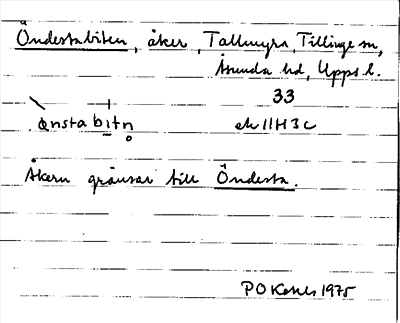 Öndestabiten, åker, Tallmyra, Tillinge sn,
Åsunda hd, Upps l.
33
ònstabitn̥ ek 11H3c
Åkern gränsar till Öndesta.
P O 1975